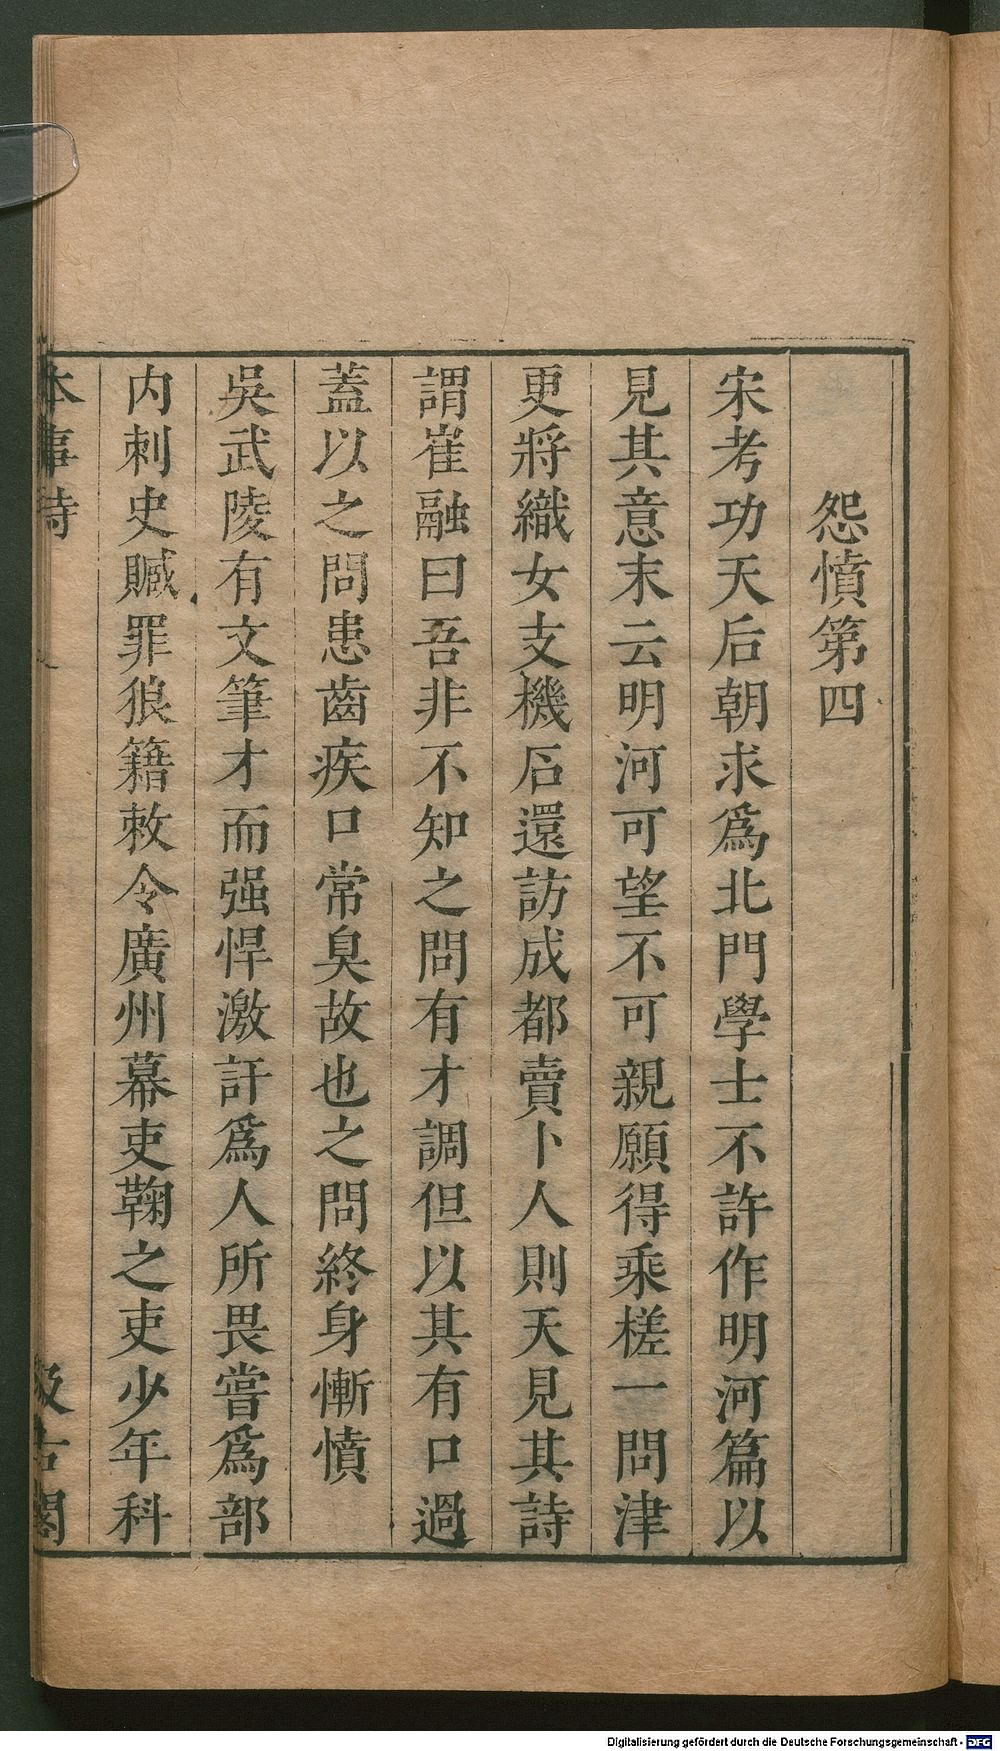 怨憤第四
宋考功天后朝求爲北門學士不許作明河篇以
見其意末云明河可望不可親願得乘槎一問津
更將織女支機石還訪成都賣卜人則天見其詩
謂崔融曰吾非不知之問有才調但以其有口過
蓋以之問患齒疾口常臭故也之問終身慚憤
吳武陵有文筆才而强悍激訐爲人所畏嘗爲部
内刺史贓罪狼籍敕令廣州幕吏鞠之吏少年科
本事詩
汲古閣
Digitalisierung gefördert durch die Deutsche Forschungsgemeinschaft - DFG